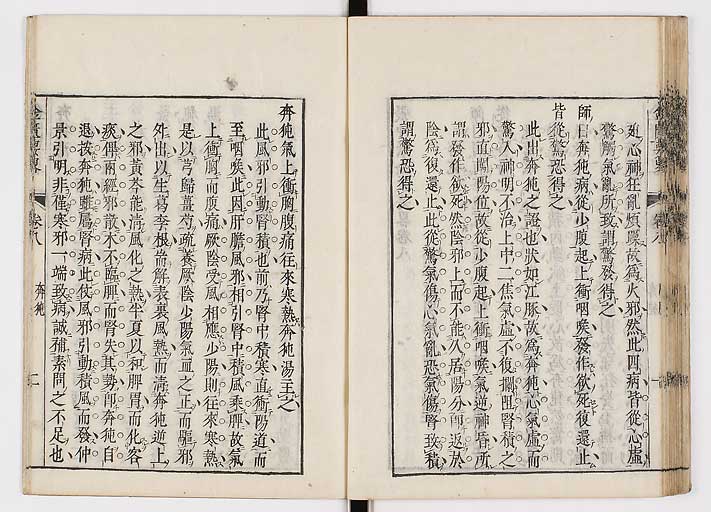 廹心神狂亂煩躁故爲火邪然此四病皆從心虛
驚觸氣亂所致謂驚發得之
師曰奔㹠病從少腹起上衝咽喉發作欲死復還止
皆從驚恐得之
此出奔㹠之證也狀如江豚故爲奔㹠心氣虛而
驚入神明不治上中二焦氣虛不復攔阻腎積之
邪直闖陽位故從少腹起上衝咽喉氣逆神昏所
謂發作欲死然陰邪上而不能久居陽分再返於
陰爲復還止此從驚氣傷心氣亂恐氣傷腎致積
謂驚恐得之
奔㹠氣上衝胸腹痛往來寒熱奔㹠湯主之
此風邪引動腎積也前乃腎中積寒直衝陽道而
至咽喉此因肝膽風邪相引腎中積風乘脾故氣
上衝胸而腹痛厥陰受風相應少陽則往來寒熱
是以芎歸薑芍疏養厥陰少陽氣血之正而驅邪
外出以生葛李根崙解表裏風熱而淸奔㹠逆上
之邪黃芩能淸風化之熱半夏以和脾胃而化客
痰俾兩經邪散木不臨脾而腎失其勢卽奔㹠自
退按奔㹠雖屬腎病此彼風邪引動積風而發仲
景引明非僅寒邪一端致病誠補素問之不足也
卷八
奔㹠
二